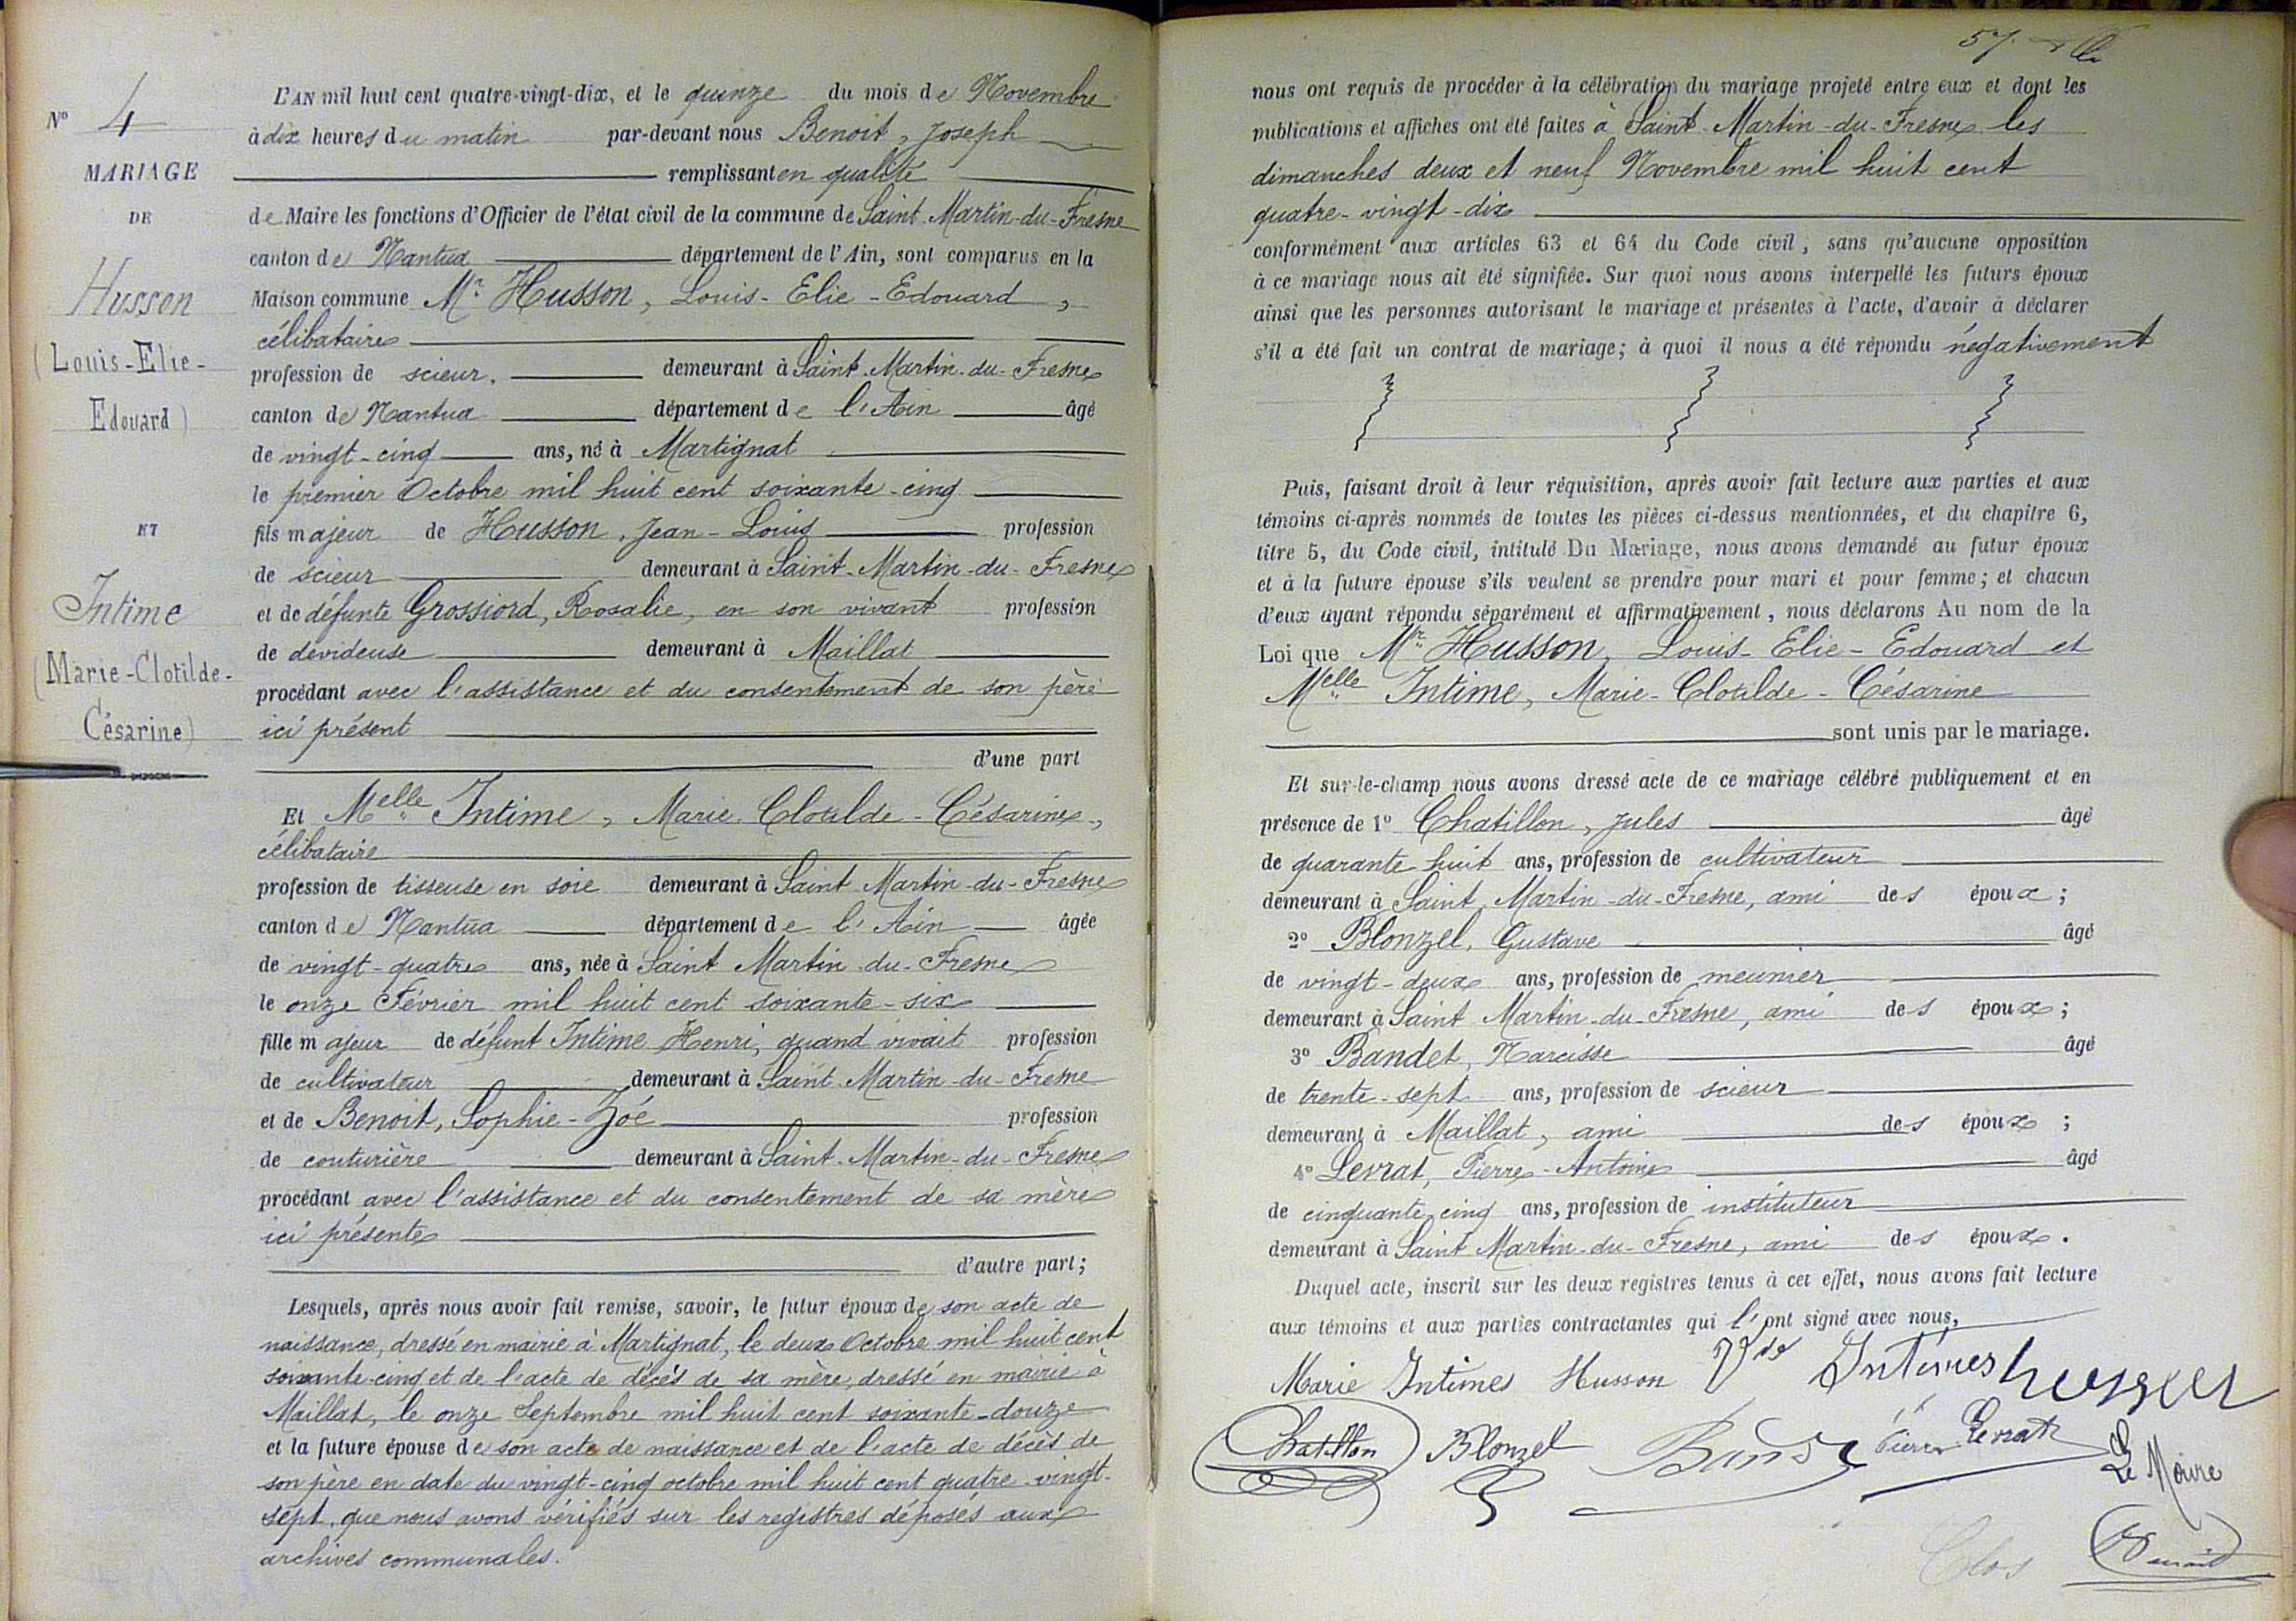 Nº 4
MARIAGE
DE
Husson
(Louis-Elie-
Edouard)
ET
Intime
(Marie-Clotilde-
Césarine)
L'AN mil huit cent quatre-vingt-dix, et le quinze du mois de Novembre
à dix heures du matin par-devant nous Benoit, Joseph
remplissant en qualité
de Maire les fonctions d'Officier de l'état civil de la commune de Saint-Martin-du-Fresne
canton de Nantua département de l'Ain, sont comparus en la
Maison commune Mr Husson, Louis-Elie-Edouard,
célibataire
profession de scieur. demeurant à Saint-Martin-du-Fresne
canton de Nantua département de l'Ain âgé
de vingt-cinq ans, né à Martignat
le premier Octobre mil huit cent soixante-cinq
fils majeur de Husson, Jean-Louis profession
de scieur demeurant à Saint-Martin-du-Fresne
et de défunte Grossiord, Rosalie, en son vivant profession
de dévideuse demeurant à Maillat
procédant avec l'assistance et du consentement de son père
ici présent
d'une part
Et Melle Intime, Marie-Clotilde-Césarine,
célibataire
profession de tisseuse en soie demeurant à Saint-Martin-du-Fresne
canton de Nantua département de l'Ain âgée
de vingt-quatre ans, née à Saint Martin-du-Fresne
le onze Février mil huit cent soixante-six
fille majeur de défunt Intime Henri, quand vivait profession
de cultivateur demeurant à Saint-Martin-du-Fresne
et de Benoit, Sophie-Zoé profession
de couturière demeurant à Saint-Martin-du-Fresne
procédant avec l'assistance et du consentement de sa mère
ici présente
d'autre part;
Lesquels, après nous avoir fait remise, savoir, le futur époux de son acte de
naissance, dressé en mairie à Martignat, le deux Octobre mil huit cent
soixante-cinq et de l'acte de décès de sa mère, dressé en mairie à
Maillat, le onze Septembre mil huit cent soixante-douze
et la future épouse de son acte de naissance et de l'acte de décès de
son père en date du vingt-cinq octobre mil huit cent quatre-vingt-
sept, que nous avons vérifiés sur les registres déposés aux
archives communales.
57.
nous ont requis de procéder à la célébration du mariage projeté entre eux et dont les
publications et affiches ont été faites à Saint-Martin-du-Fresne les
dimanches deux et neuf Novembre mil huit cent
quatre-vingt-dix
conformément aux articles 63 et 64 du Code civil, sans qu'aucune opposition
à ce mariage nous ait été signifiée. Sur quoi nous avons interpellé les futurs époux
ainsi que les personnes autorisant le mariage et présentes à l'acte, d'avoir à déclarer
s'il a été fait un contrat de mariage; à quoi il nous a été répondu négativement
Puis, faisant droit à leur réquisition, après avoir fait lecture aux parties et aux
témoins ci-après nommés de toutes les pièces ci-dessus mentionnées, et du chapitre 6,
titre 5, du Code civil, intitulé Du Mariage, nous avons demandé au futur époux
et à la future épouse s'ils veulent se prendre pour mari et pour femme; et chacun
d'eux ayant répondu séparément et affirmativement, nous déclarons Au nom de la
Loi que Mr Husson, Louis-Elie-Edouard et
Melle Intime, Marie-Clotilde-Césarine
sont unis par le mariage.
Et sur-le-champ nous avons dressé acte de ce mariage célébré publiquement et en
présence de 1º Chatillon, Jules âgé
de quarante huit ans, profession de cultivateur
demeurant à Saint-Martin-du-Fresne, ami des époux;
2º Blonzel, Gustave âgé
de vingt-deux ans, profession de meunier
demeurant à Saint Martin-du-Fresne, ami des époux;
3º Bandet, Narcisse âgé
de trente-sept ans, profession de scieur
demeurant à Maillat, ami des époux;
4º Levrat, Pierre-Antoine âgé
de cinquante cinq ans, profession de instituteur
demeurant à Saint Martin-du-Fresne, ami des époux.
Duquel acte, inscrit sur les deux registres tenus à cet effet, nous avons fait lecture
aux témoins et aux parties contractantes qui l'ont signé avec nous,
Marie Intimes Husson Vve Intimes
Chatillon Blonzel Pierre Levrat
Le Maire
Benoit
Clos